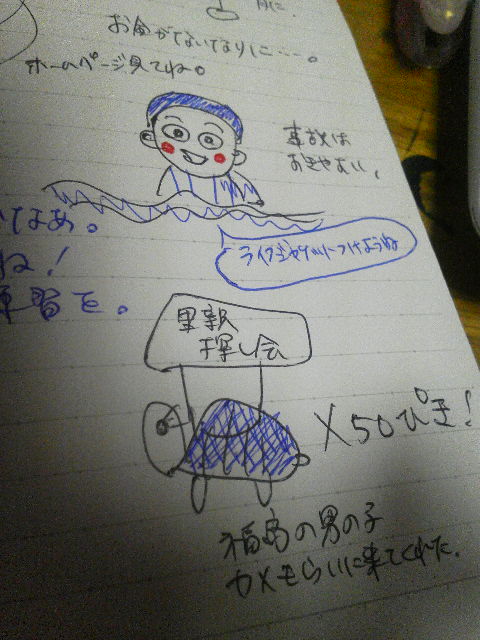 お金がないなりに・・・。
ホームページ見てね。
事故は
おきやすい。
なあ。
ライフジャケットつけようね
ね!
練習を。
里親
探し会
×50ぴき!
福島の男の子
カメもらいに来てくれた。